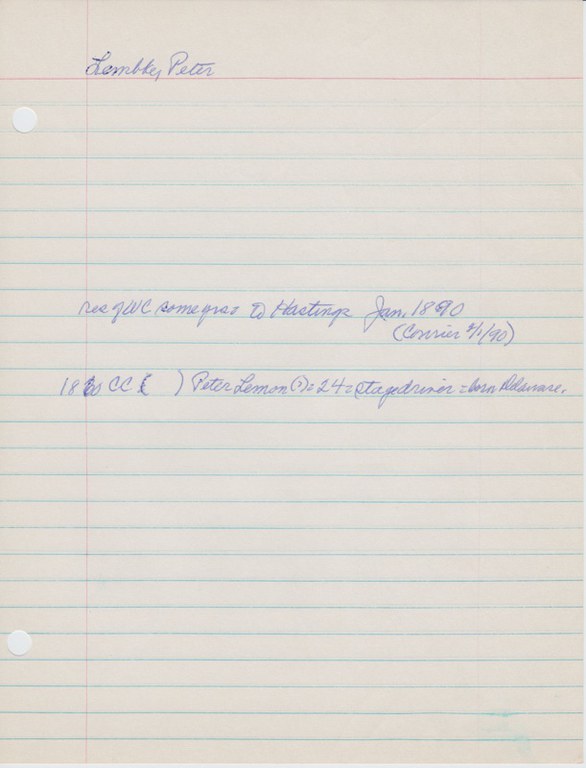 Lembke, Peter
res of WC some yrs to Hastings Jan. 1890
(Courier 2/1/90)
18 CC ( ) Peter Lemon (?) = 24 = stagedriver = born Delaware.